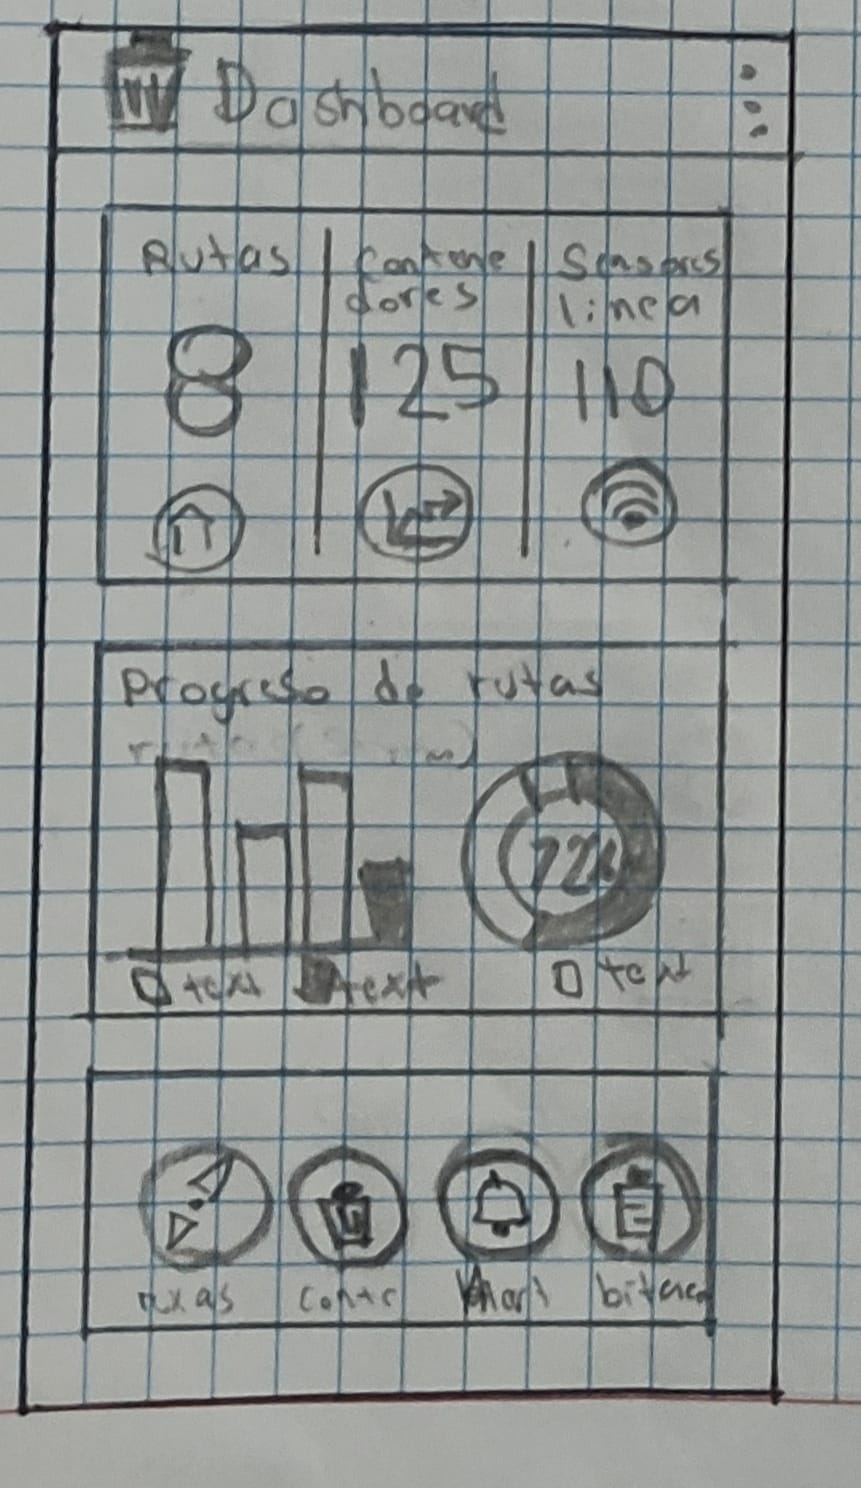 Dashboard
Rutas
Contene
dores
Sensores
linea
8
125
110
Progreso de rutas
72%
text
text
text
rutas
conte
bitaco